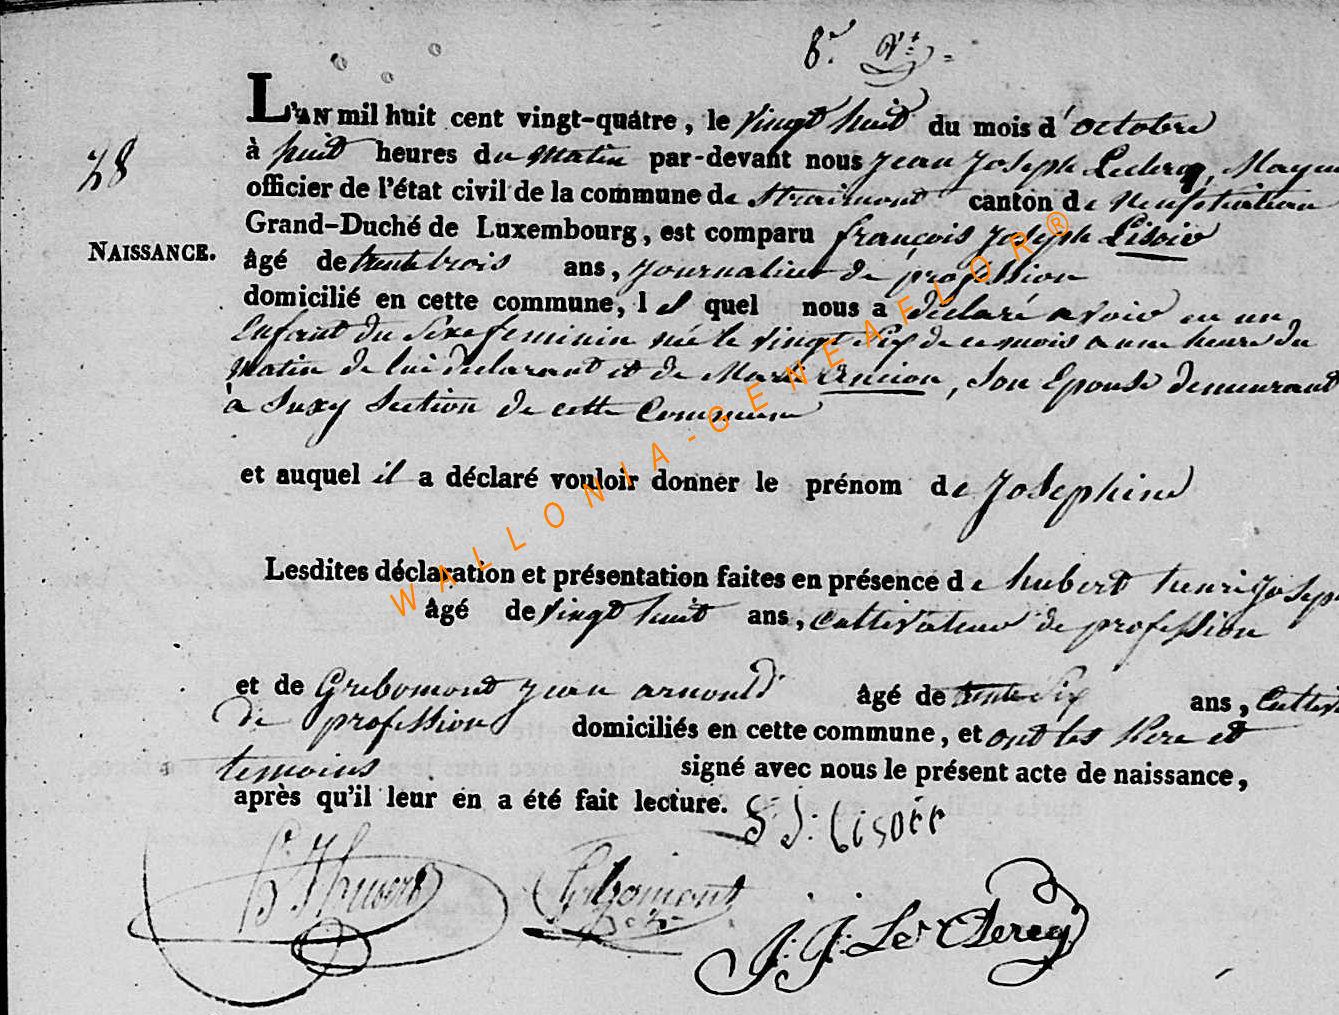 28
NAISSANCE.
L'AN mil huit cent vingt-quatre, le vingt huit du mois d'octobre
à huit heures du matin par-devant nous jean joseph Leclerq, Mayeur
officier de l'état civil de la commune de Straimont canton de Neufchateau
Grand-Duché de Luxembourg, est comparu françois joseph Lisoir
âgé de trente trois ans, journalier de profession
domicilié en cette commune, lequel nous a déclaré avoir eu un
Enfant du Sexe feminin née le vingt Six de ce mois a une heure du
Matin de lui declarant et de Marie Ancion, Son Epouse demeurant
à Suxy Section de cette Commune
et auquel il a déclaré vouloir donner le prénom de josephine
Lesdites déclaration et présentation faites en présence de hubert henri joseph
âgé de vingt huit ans, cultivateur de profession
et de Gribomont jean arnould âgé de trente Six ans, Cultiv
de profession domiciliés en cette commune, et ont les Pere et
temoins signé avec nous le présent acte de naissance,
après qu'il leur en a été fait lecture.
f: j: Lisoir
Gribomont
J: J: Le Clercq
WALLONIA-GENEAFLOR®